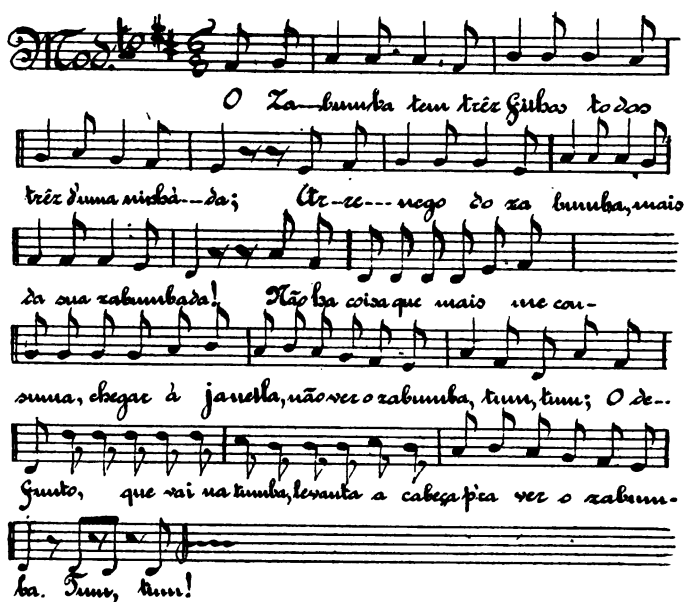 Mod.to 6 8
O Za---bumba tem três filhos todos
três d'uma ninhà---da; Ar--re---nego do za bumba, mais
da sua zabumbada! Não ha coisa que mais me con-
suma, chegar à janella, não ver o zabumba, tum, tum; O de--
funto, que vai na tumba, levanta a cabeça p'ra ver o zabum-
ba. Tum, tum!